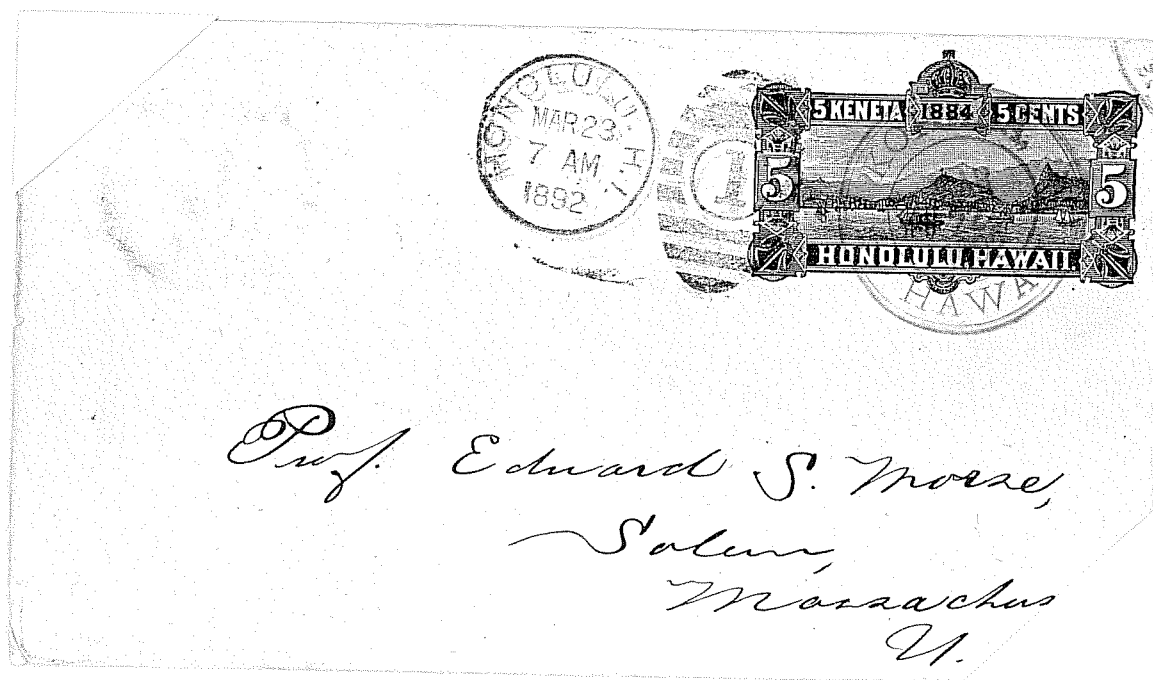 HONOLULU. H. I.
MAR 23
7 AM
1892
1
5 KENETA 1884 5 CENTS
5 5
HONOLULU, HAWAII.
HAWA
Prof. Edward S. Morse,
Salem,
Massachus
U.